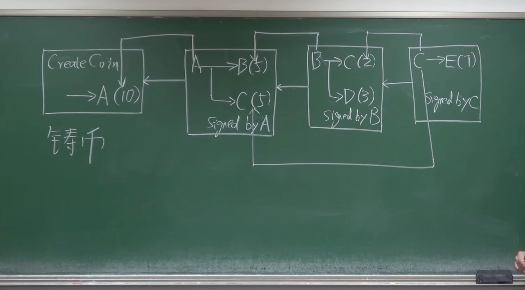 Create Coin
→ A (10)
A → B(5)
→ C(5)
signed by A
B → C(2)
→ D(3)
signed by B
C → E(7)
signed by C
铸币